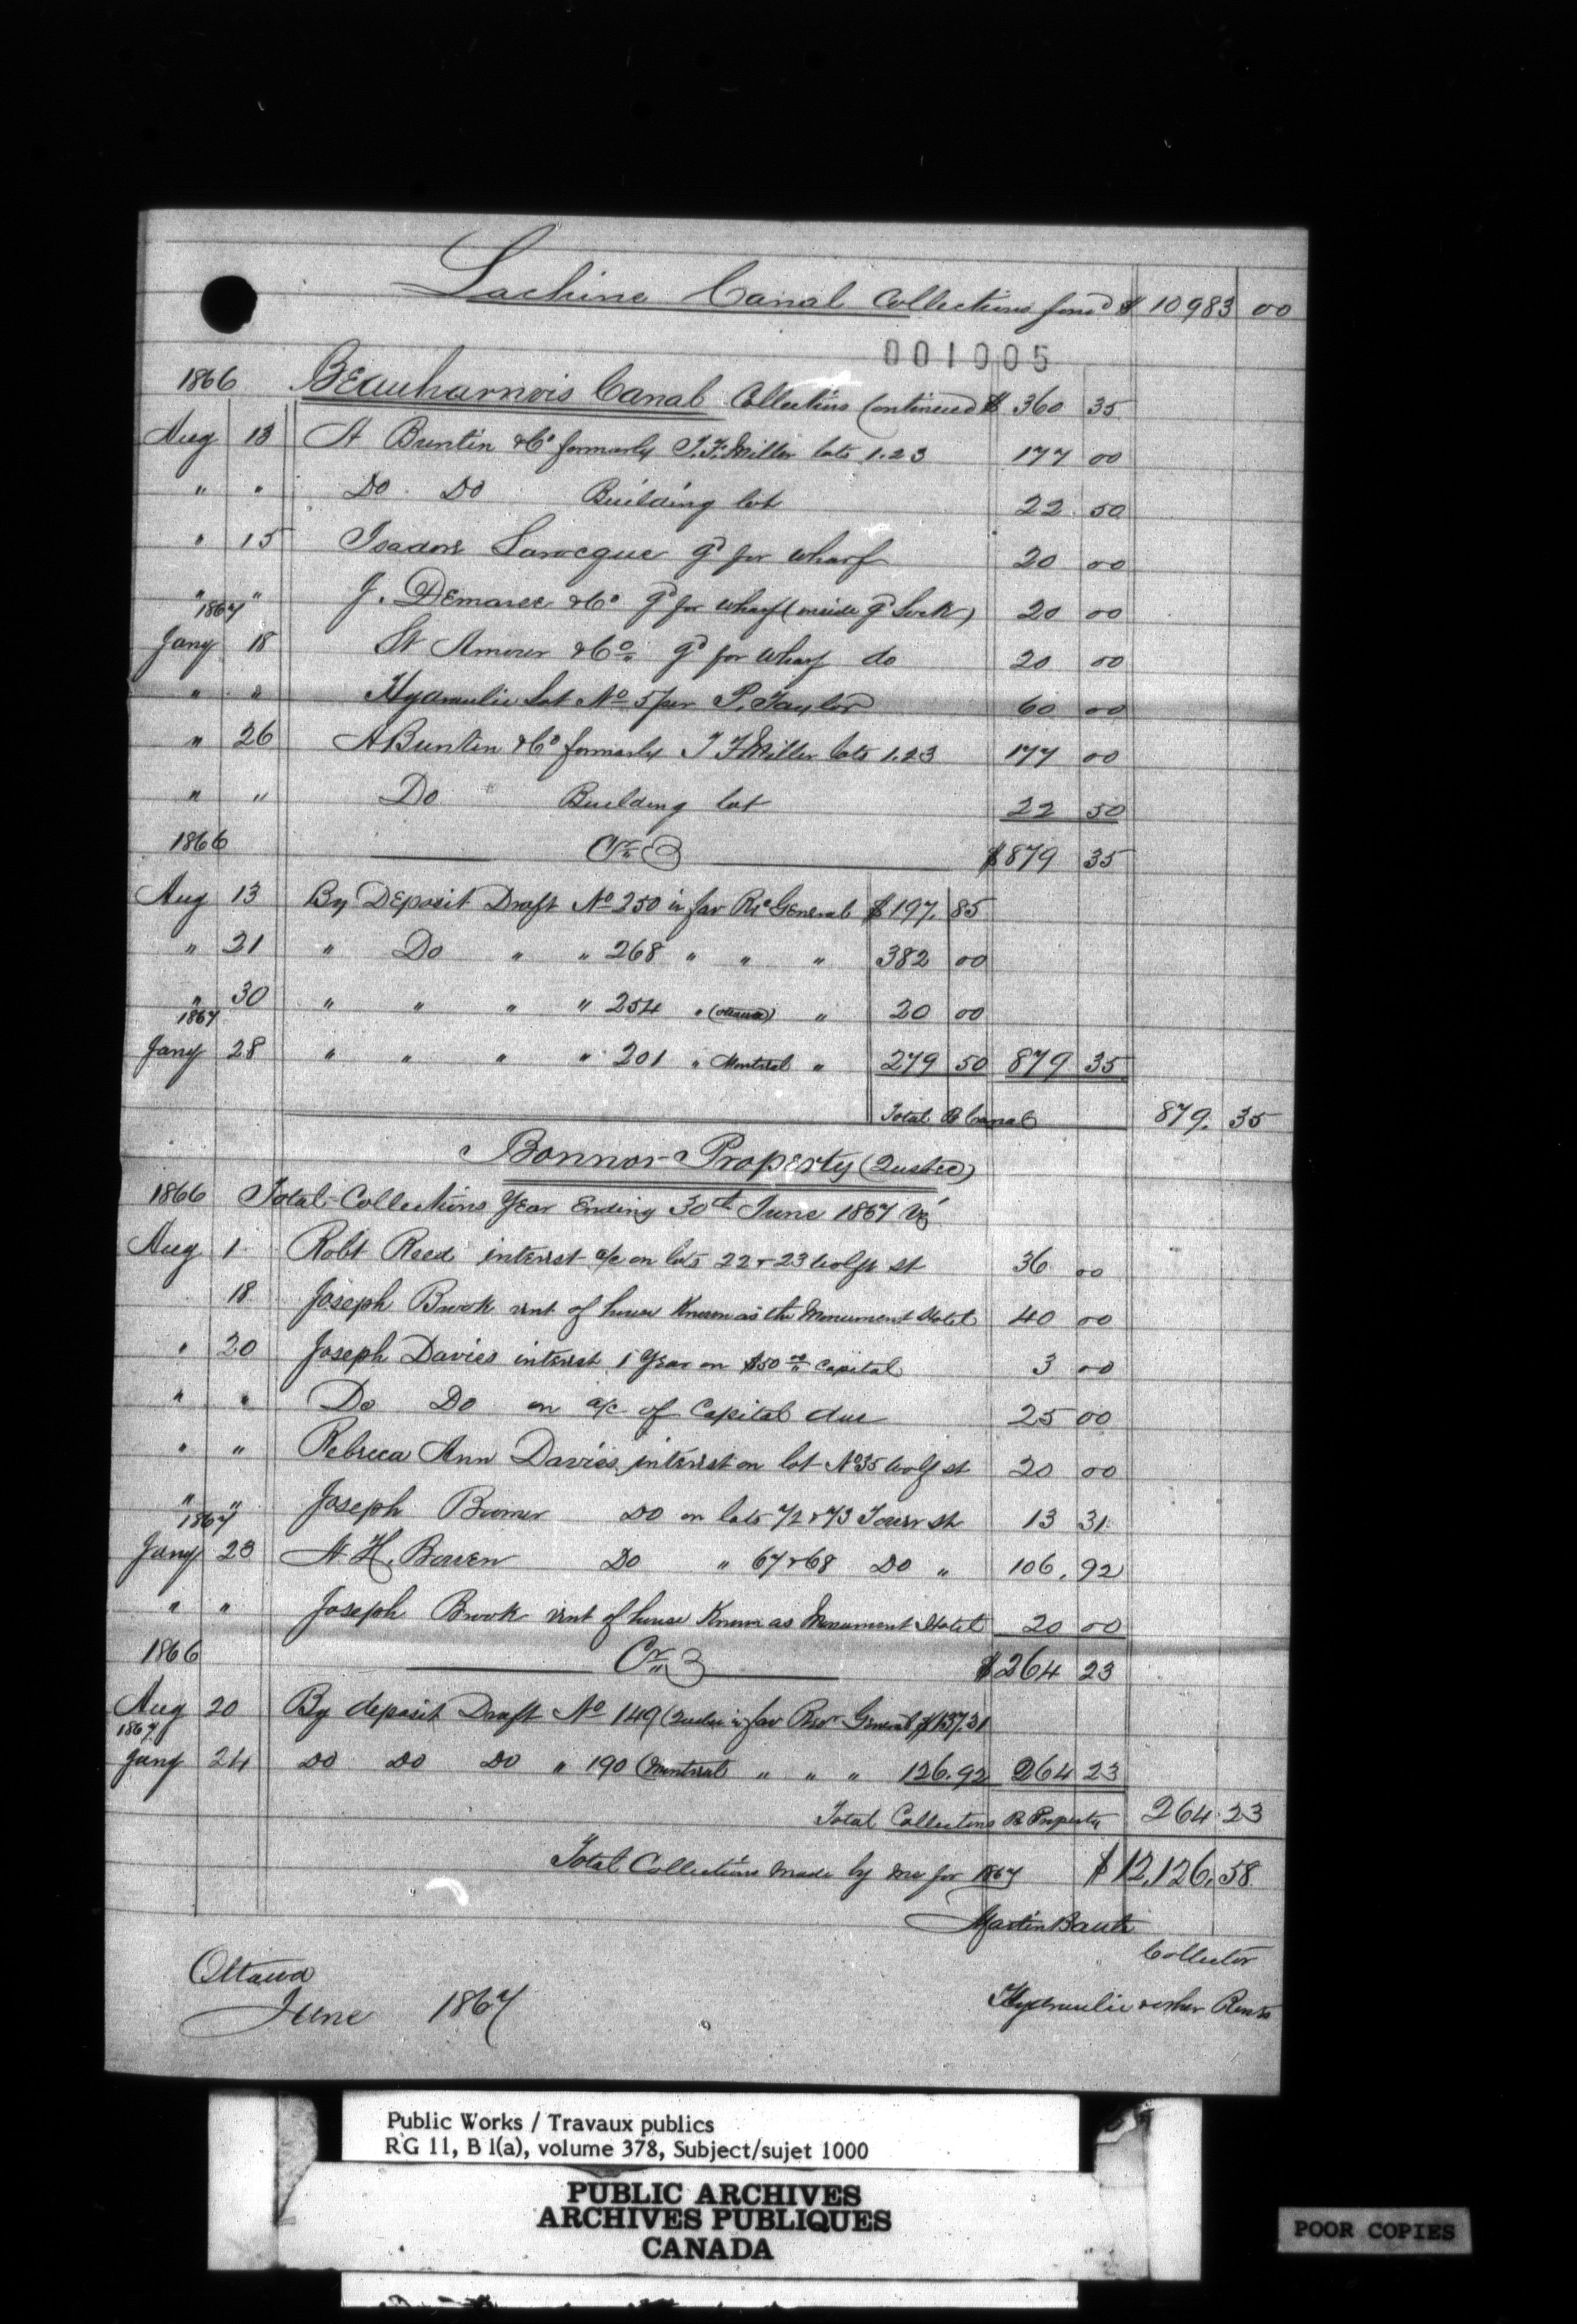 Lachine Canal Collections forwd $ 10983 00
001005
1866 Beauharnois Canal Collections Continued $ 360 35
Aug 13 A Buntin & Co formerly T.F. Miller lots 1.23 177 00
" " Do Do Building lot 22 50
" 15 Isadore Larocque Gd for wharf 20 00
" " J. Demaree & Co Gd for wharf (inside Gd Lock) 20 00
1867
Jany 18 St Amour & Co Gd for wharf do 20 00
" " Hydraulic Lot No 5 per P. Taylor 60 00
" 26 A Buntin & Co formerly T F Miller lots 1.23 177 00
" " Do Building lot 22 50
1866 Cr $879 35
Aug 13 By Deposit Draft No 250 in fav Rr General $197. 85
" 21 " Do " " 268 " " " 382 00
" 30 " " " " 254 " (Ottawa) " 20 00
1867
Jany 28 " " " " 201 " Montreal " 279 50 879 35
Total B Canal 879. 35
Bonnor Property (Quebec)
1866 Total Collections Year Ending 30th June 1867 Viz
Aug 1 Robt Reed interest a/c on lots 22 & 23 Wolfe st 36 00
18 Joseph Brook rent of house Known as the Monument Hotel 40 00
" 20 Joseph Davies interest 1 Year on $50 00 Capital 3 00
" " Do Do on a/c of Capital due 25 00
" " Rebecca Ann Davies interest on lot No 35 Wolf st 20 00
" " Joseph Do on lots 72 & 73 Tower st 13 31
1867
Jany 23 N. H. Bowen Do " 67 & 68 Do " 106. 92
" " Joseph Brook rent of house Known as Monument Hotel 20 00
1866 Cr $264 23
Aug 20 By deposit Draft No 149 (Quebec in fav Recr General $137.31
1867
Jany 24 Do Do Do " 190 (Montreal " " " 126.92 264 23
Total Collections B Property 264 23
Total Collections made by me for 1867 $12,126.58
Martin
Collector
Hydraulic & other Rents
Ottawa
June 1867
Public Works / Travaux publics
RG 11, B 1(a), volume 378, Subject/sujet 1000
PUBLIC ARCHIVES
ARCHIVES PUBLIQUES
CANADA
POOR COPIES